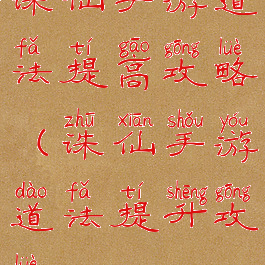 诛仙手游道
fǎ tí gāo gōng lüè
法提高攻略
zhū xiān shǒu yóu
（诛仙手游
dào fǎ tí shēng gōng
道法提升攻
lüè